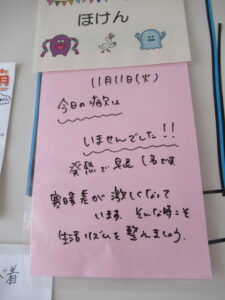 ほけん
11月11日(火)
今日の病欠は
いませんでした!!
発熱で早退 1名です
寒暖差が激しくなって
います。そんな時こそ
生活リズムを整えましょう。
月
着